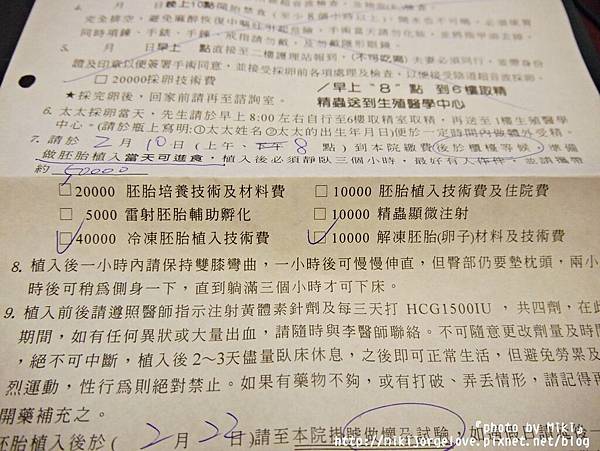 4. 月 日晚上10點開始禁食
完全排空，避免麻醉恢復中嘔吐
同時項鍊、手錶、手鍊、戒指請勿戴，及勿戴隱形眼鏡。
5. 月 日早上 點直接至二樓護理站報到，(不可吃喝)夫妻必須同行，並帶身份
證及印章以便簽署手術同意，並接受採卵前各項處理及檢查，以便接受陰道超音波採卵。
□20000採卵技術費
★採完卵後，回家前請再至諮詢室。
/早上 "8" 點 到6樓取精
精蟲送到生殖醫學中心
6. 太太採卵當天，先生請於早上8:00左右自行至6樓取精室取精，再送至1樓生殖醫學
中心。(請於瓶上寫明:①太太姓名②太太的出生年月日)便於一定時間內做體外受精。
7. 請於 2 月 10 日 (上午、下午 8 點) 到本院繳費(後於櫃檯等候)，準備
做胚胎植入當天可進食，植入後必須靜臥三個小時，最好有人作伴，並請攜帶
約 52000
□20000 胚胎培養技術及材料費 □10000 胚胎植入技術費及住院費
□ 5000 雷射胚胎輔助孵化 □10000 精蟲顯微注射
□40000 冷凍胚胎植入技術費 □10000 解凍胚胎(卵子)材料及技術費
8. 植入後一小時內請保持雙膝彎曲，一小時後可慢慢伸直，但臀部仍要墊枕頭，兩小
時後可稍為側身一下，直到躺滿三個小時才可下床。
9. 植入前後請遵照醫師指示注射黃體素針劑及每三天打 HCG1500IU ，共四劑，在此
期間，如有任何異狀或大量出血，請隨時與李醫師聯絡。不可隨意更改劑量及時間
，絕不可中斷，植入後2～3天儘量臥床休息，之後即可正常生活，但避免勞累及
烈運動，性行為則絕對禁止。如果有藥物不夠，或有打破、弄丟情形，請記得再
開藥補充之。
胚胎植入後於 ( 2 月 22 日)請至本院掛號做懷孕試驗，如
『Photo by Miki』
http://mikijorgelove.pixnet.net/blog